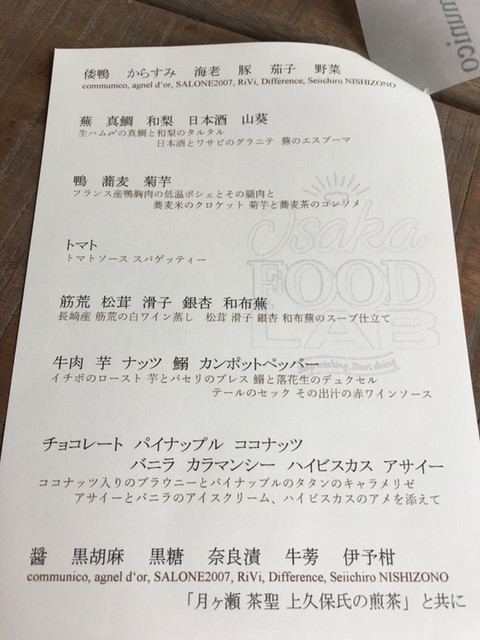 mmunico
倭鴨 からすみ 海老 豚 茄子 野菜
communico, agnel d'or, SALONE2007, RiVi, Différence, Seiichiro NISHIZONO
蕪 真鯛 和梨 日本酒 山葵
生ハム〆の真鯛と和梨のタルタル
日本酒とワサビのグラニテ 蕪のエスプーマ
鴨 蕎麦 菊芋
フランス産鴨胸肉の低温ポシェとその腿肉と
蕎麦米のクロケット 菊芋と蕎麦茶のコンソメ
トマト
トマトソース スパゲッティー
Osaka
FOOD
LAB
筋荒 松茸 滑子 銀杏 和布蕪
長崎産 筋荒の白ワイン蒸し 松茸 滑子 銀杏 和布蕪のスープ仕立て
牛肉 芋 ナッツ 鰯 カンポットペッパー
イチボのロースト 芋とパセリのプレス 鰯と落花生のデュクセル
テールのセック その出汁の赤ワインソース
チョコレート パイナップル ココナッツ
バニラ カラマンシー ハイビスカス アサイー
ココナッツ入りのブラウニーとパイナップルのタタンのキャラメリゼ
アサイーとバニラのアイスクリーム、ハイビスカスのアメを添えて
醤 黒胡麻 黒糖 奈良漬 牛蒡 伊予柑
communico, agnel d'or, SALONE2007, RiVi, Différence, Seiichiro NISHIZONO
「月ヶ瀬 茶聖 上久保氏の煎茶」と共に